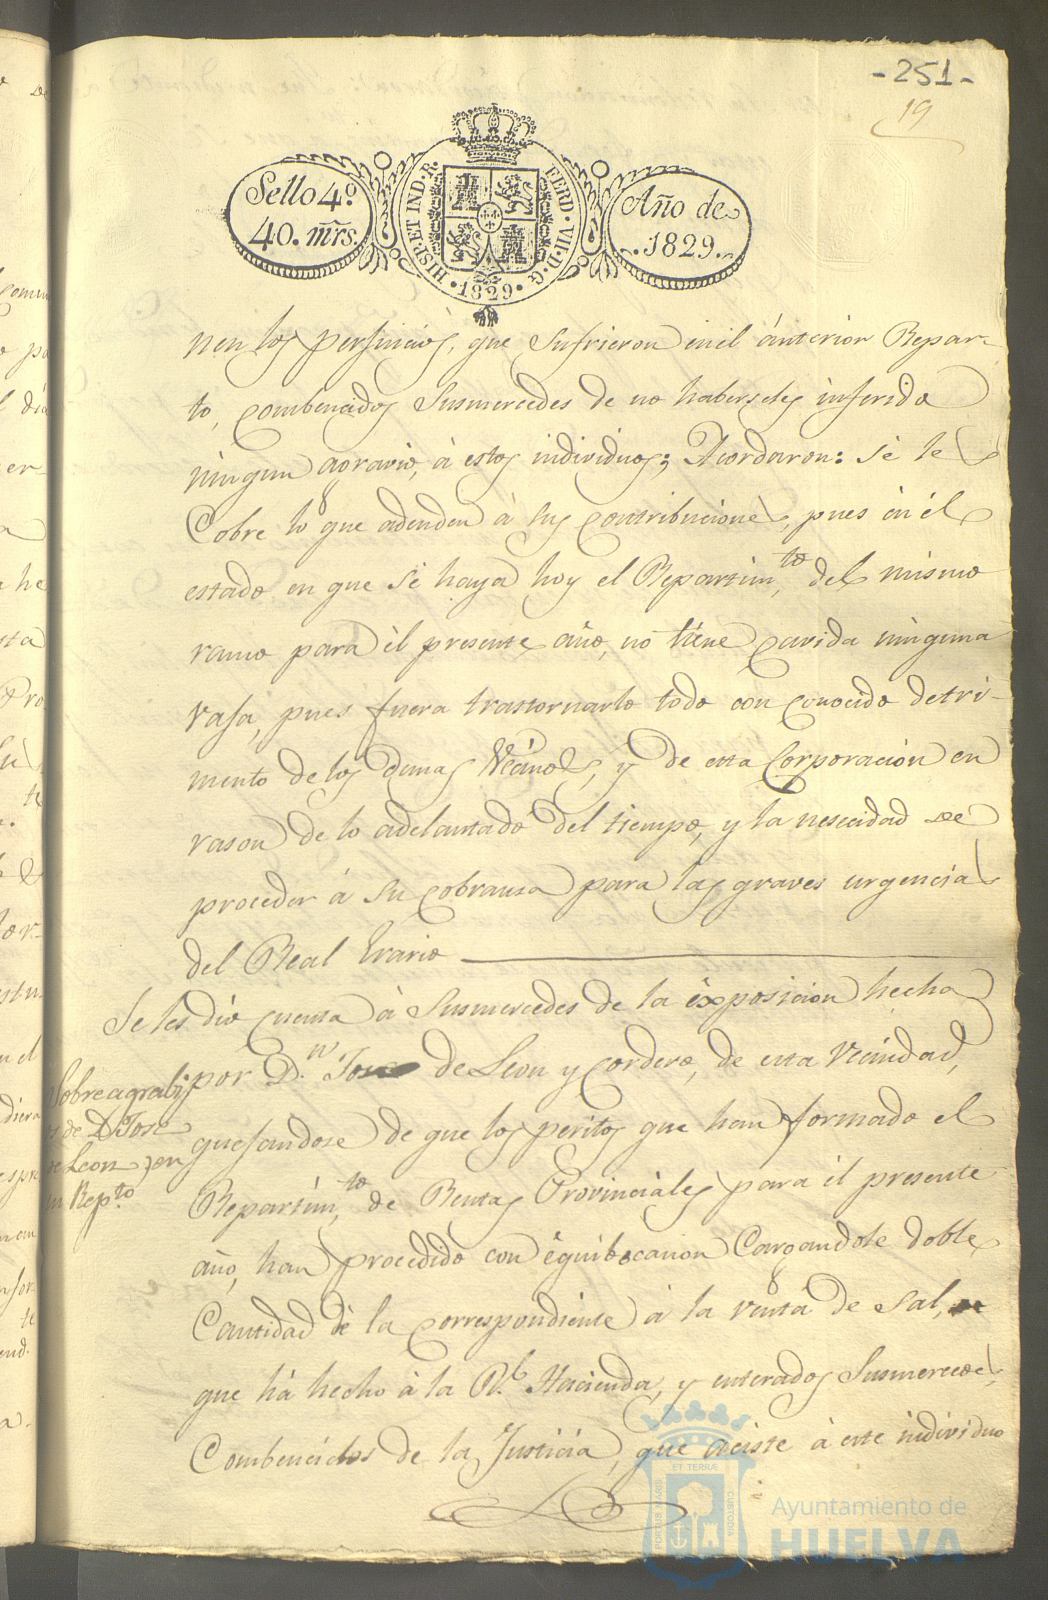 -251-
19
Sello 4º.
40. mrs.
HISP. ET IND. R.
FERD. VII. D. G.
1829.
Año de
1829.
nen los perjuicios, que sufrieron en el ánterior Repar-
to, combencidos Susmercedes de no haberseles inferido
ningun agravio, á estos individuos; Acordaron: se le
Cobre lo que adeuden á sus contribuciones, pues en él
estado en que sé haya hoy el Repartimto. del mismo
ramo para él presente año, no tiene cavida ninguna
rasa, pues fuera trastornarlo todo con conocido detri-
mento de los demas Vecinos, y de esta Corporacion en
rason de lo adelantado del tiempo, y la nesecidad de
proceder á su cobransa para las graves urgencias
del Real Erario
Se les dió cuenta á Susmercedes de la éxposicion hecha
por Dn. Jose de Leon y Cordero, de esta Vecindad,
quejandose de que los peritos que han formado el
Repartimto. de Rentas Provinciales para él presente
año, han procedido con équibocacion Cargandole doble
Cantidad de la correspondiente á la venta de Sal,
que há hecho á la Rl. Hacienda, y enterados Susmercedes
Combencidos de la Justicia, que aciste á este individuo
Sobre agrabi
de D. Jose
de Leon en
Repto.
PORTUS MARIS
ET TERRÆ
CUSTODIA
Ayuntamiento de
HUELVA